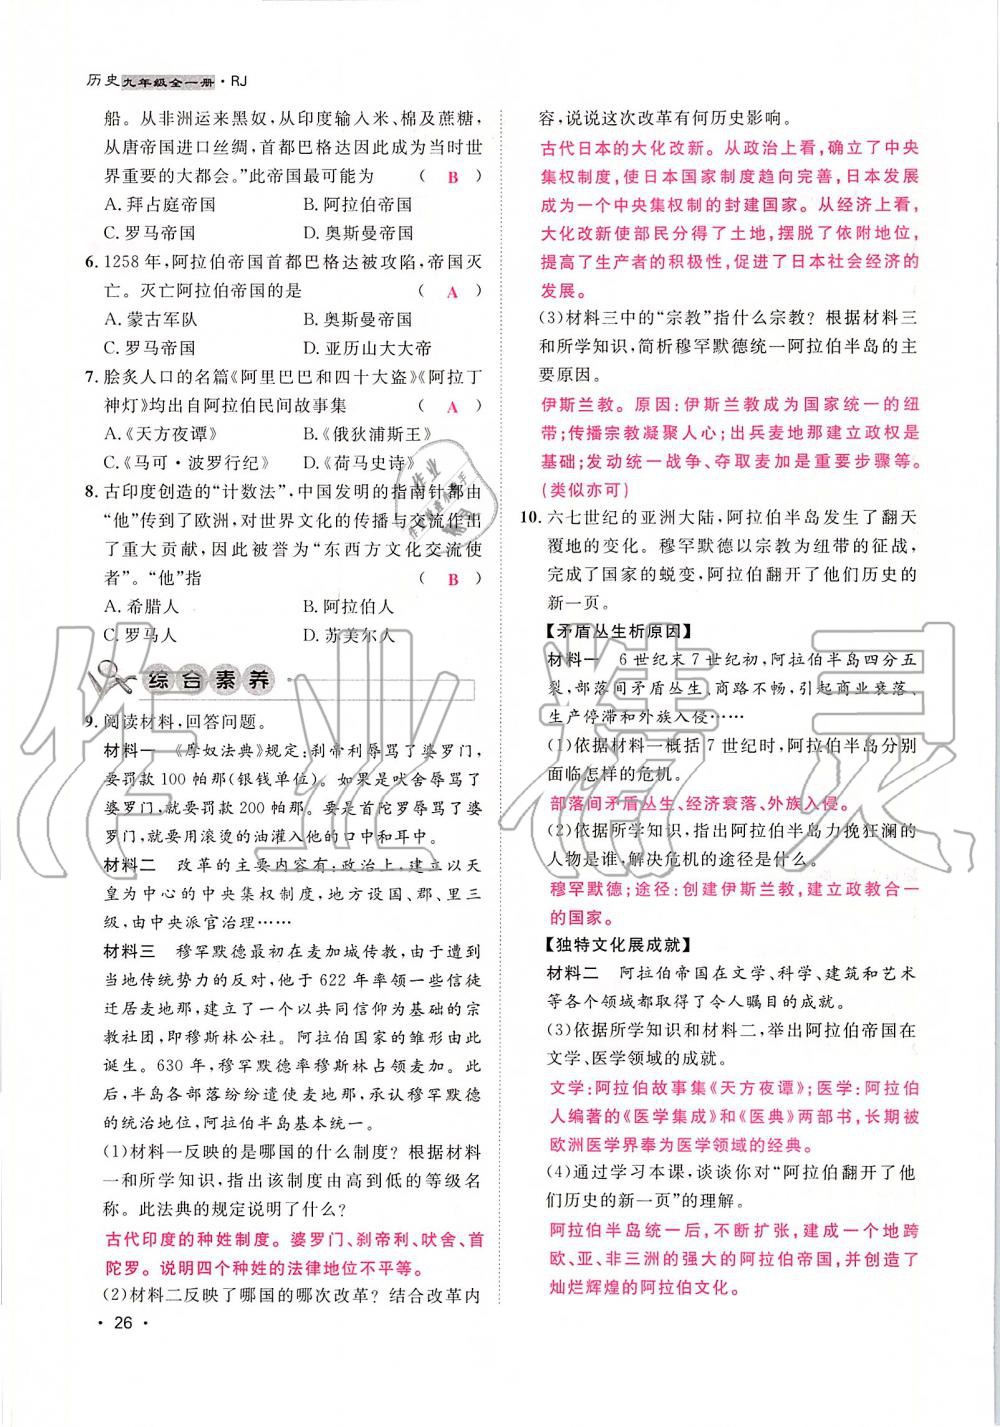 历史九年级全一册·RJ
船。从非洲运来黑奴，从印度输入米、棉及蔗糖，
从唐帝国进口丝绸，首都巴格达因此成为当时世
界重要的大都会。”此帝国最可能为 （ B ）
A.拜占庭帝国 B.阿拉伯帝国
C.罗马帝国 D.奥斯曼帝国
6. 1258年，阿拉伯帝国首都巴格达被攻陷，帝国灭
亡。灭亡阿拉伯帝国的是 （ A ）
A.蒙古军队 B.奥斯曼帝国
C.罗马帝国 D.亚历山大大帝
7. 脍炙人口的名篇《阿里巴巴和四十大盗》《阿拉丁
神灯》均出自阿拉伯民间故事集 （ A ）
A.《天方夜谭》 B.《俄狄浦斯王》
C.《马可·波罗行纪》 D.《荷马史诗》
8. 古印度创造的“计数法”，中国发明的指南针都由
“他”传到了欧洲，对世界文化的传播与交流作出
了重大贡献，因此被誉为“东西方文化交流使
者”。“他”指 （ B ）
A.希腊人 B.阿拉伯人
C.罗马人 D.苏美尔人
综合素养
9. 阅读材料，回答问题。
材料一 《摩奴法典》规定：刹帝利辱骂了婆罗门，
要罚款100帕那（银钱单位）。如果是吠舍辱骂了
婆罗门，就要罚款200帕那。要是首陀罗辱骂了婆
罗门，就要用滚烫的油灌入他的口中和耳中。
材料二 改革的主要内容有：政治上，建立以天
皇为中心的中央集权制度，地方设国、郡、里三
级，由中央派官治理……
材料三 穆罕默德最初在麦加城传教，由于遭到
当地传统势力的反对，他于622年率领一些信徒
迁到麦地那，建立了一个以共同信仰为基础的宗
教社团，即穆斯林公社。阿拉伯国家的雏形由此
诞生。630年，穆罕默德率穆斯林占领麦加。此
后，半岛各部落纷纷遣使麦地那，承认穆罕默德
的统治地位，阿拉伯半岛基本统一。
(1)材料一反映的是哪国的什么制度？根据材料
一和所学知识，指出该制度由高到低的等级名
称。此法典的规定说明了什么？
古代印度的种姓制度。婆罗门、刹帝利、吠舍、首
陀罗。说明四个种姓的法律地位不平等。
(2)材料二反映了哪国的哪次改革？结合改革内
· 26 ·
容，说说这次改革有何历史影响。
古代日本的大化改新。从政治上看，确立了中央
集权制度，使日本国家制度趋向完善，日本发展
成为一个中央集权制的封建国家。从经济上看，
大化改新使部民分得了土地，摆脱了依附地位，
提高了生产者的积极性，促进了日本社会经济的
发展。
(3)材料三中的“宗教”指什么宗教？根据材料三
和所学知识，简析穆罕默德统一阿拉伯半岛的主
要原因。
伊斯兰教。原因：伊斯兰教成为国家统一的纽
带；传播宗教凝聚人心；出兵麦地那建立政权是
基础；发动统一战争、夺取麦加是重要步骤等。
（类似亦可）
10. 六七世纪的亚洲大陆，阿拉伯半岛发生了翻天
覆地的变化。穆罕默德以宗教为纽带的征战，
完成了国家的蜕变，阿拉伯翻开了他们历史的
新一页。
【矛盾丛生析原因】
材料一 6世纪末7世纪初，阿拉伯半岛四分五
裂，部落间矛盾丛生、商路不畅，引起商业衰落、
生产停滞和外族入侵……
(1)依据材料一概括7世纪时，阿拉伯半岛分别
面临怎样的危机。
部落间矛盾丛生、经济衰落、外族入侵。
(2)依据所学知识，指出阿拉伯半岛力挽狂澜的
人物是谁，解决危机的途径是什么。
穆罕默德；途径：创建伊斯兰教，建立政教合一
的国家。
【独特文化展成就】
材料二 阿拉伯帝国在文学、科学、建筑和艺术
等各个领域都取得了令人瞩目的成就。
(3)依据所学知识和材料二，举出阿拉伯帝国在
文学、医学领域的成就。
文学：阿拉伯故事集《天方夜谭》；医学：阿拉伯
人编著的《医学集成》和《医典》两部书，长期被
欧洲医学界奉为医学领域的经典。
(4)通过学习本课，谈谈你对“阿拉伯翻开了他
们历史的新一页”的理解。
阿拉伯半岛统一后，不断扩张，建成一个地跨
欧、亚、非三洲的强大的阿拉伯帝国，并创造了
灿烂辉煌的阿拉伯文化。
作业精灵